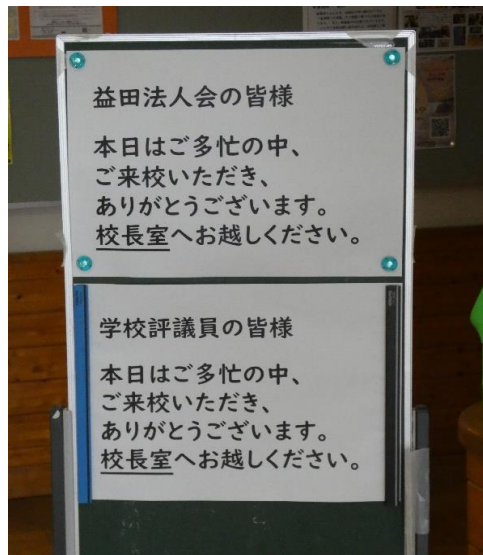 益田法人会の皆様
本日はご多忙の中、
ご来校いただき、
ありがとうございます。
校長室へお越しください。
学校評議員の皆様
本日はご多忙の中、
ご来校いただき、
ありがとうございます。
校長室へお越しください。